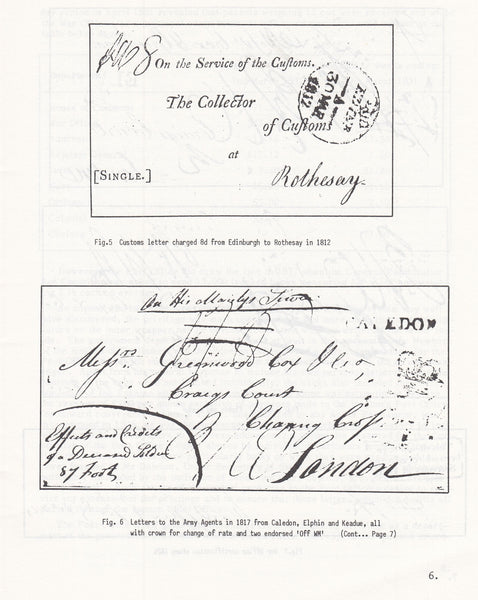 On the Service of the Customs.
The Collector
of Customs
at
[SINGLE.]
Rothesay.
30 MAR
A
1812
Fig.5 Customs letter charged 8d from Edinburgh to Rothesay in 1812
On His Majestys Service
CALEDON
Messrs. Greenwood Cox &
Craigs Court
Charing Cross
London
Effects and Credits
of a Deceased Soldier
87 Foot
Fig. 6 Letters to the Army Agents in 1817 from Caledon, Elphin and Keadue, all
with crown for change of rate and two endorsed 'Off WM' (Cont... Page 7)
6.